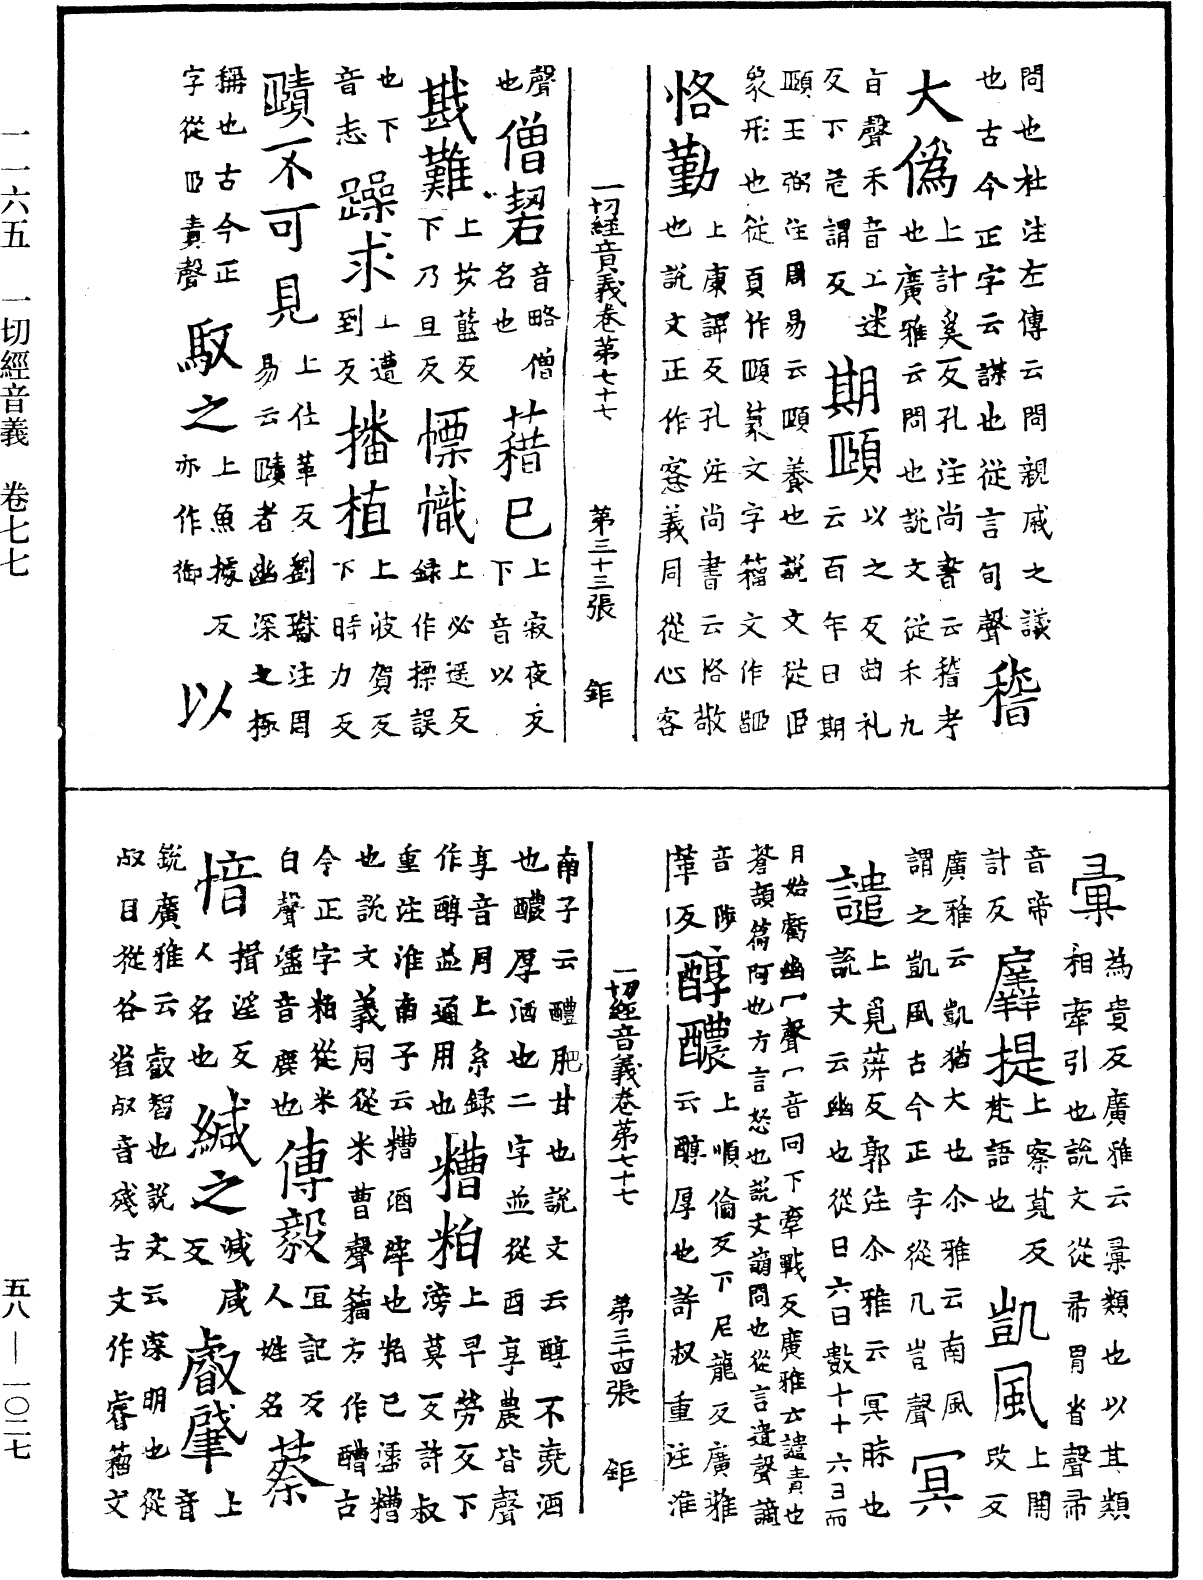 問也杜注左傳云問親戚之議
也古今正字云謀也從言旬聲 稽
大僞 上計奚反孔注尚書云稽考
也廣雅云問也說文從禾九
旨聲禾音上迷 期頤 以之反曲礼
反下危謂反 云百年日期
頤王弼注周易云頤養也說文從𦣞
象形也從頁作頤篆文字籀文作𦣞
恪勤 上康謌反孔注尚書云恪敬
也說文正作愙義同從心客
一切經音義卷第七十七 第三十三張 鉅
聲 僧䂮 音略僧 藉已 上寂夜反
也 名也 下音以
戡難 上坎藍反 慓幟 上必遥反
下乃旦反 録作摽誤
也下 躁求 上遭 播植 上波賀反
音志 到反 下時力反
賾不可見 上仕革反劉瓛注周
易云賾者幽深之極
稱也古今正 馭之 上魚據反 以
字從𦣞責聲 亦作御
彙 為貴反廣雅云彙類也以其類
相牽引也說文從㣇胃省聲㣇
音帝 羼提 上察莧反 凱風 上開
計反 梵語也 改反
廣雅云凱猶大也尒雅云南風 冥
謂之凱風古今正字從几豈聲
譴 上覓萍反郭注尒雅云冥昧也
說文云幽也從日六日數十十六日而
月始虧幽冖聲冖音同下牽戰反廣雅云譴責也
蒼頡篇呵也方言怒也說文謫問也從言遣聲謫
音陟 醇醲 上順倫反下尼龍反廣雅
革反 云醇厚也許叔重注淮
一切經音義卷第七十七 第三十四張 鉅
南子云醴肥甘也說文云醇不澆酒
也醲厚酒也二字並從酉享農皆聲
享音月上系録 糟粕 上早勞反下
作醇並通用也 滂莫反許叔
重注淮南子云糟酒滓也粕已漉糟
也說文義同從米曹聲籀方作醩古
今正字粕從米 傅毅 冝記反 蔡
白聲漉音麃也 人姓名
愔 揖淫反 緘之 減咸 叡肇 上
人名也 反 音
鋭廣雅云叡智也說文云深明也從
㕡目從谷省㕡音殘古文作睿籀文
一一六五 一切經音義 卷七七 五八—一〇二七